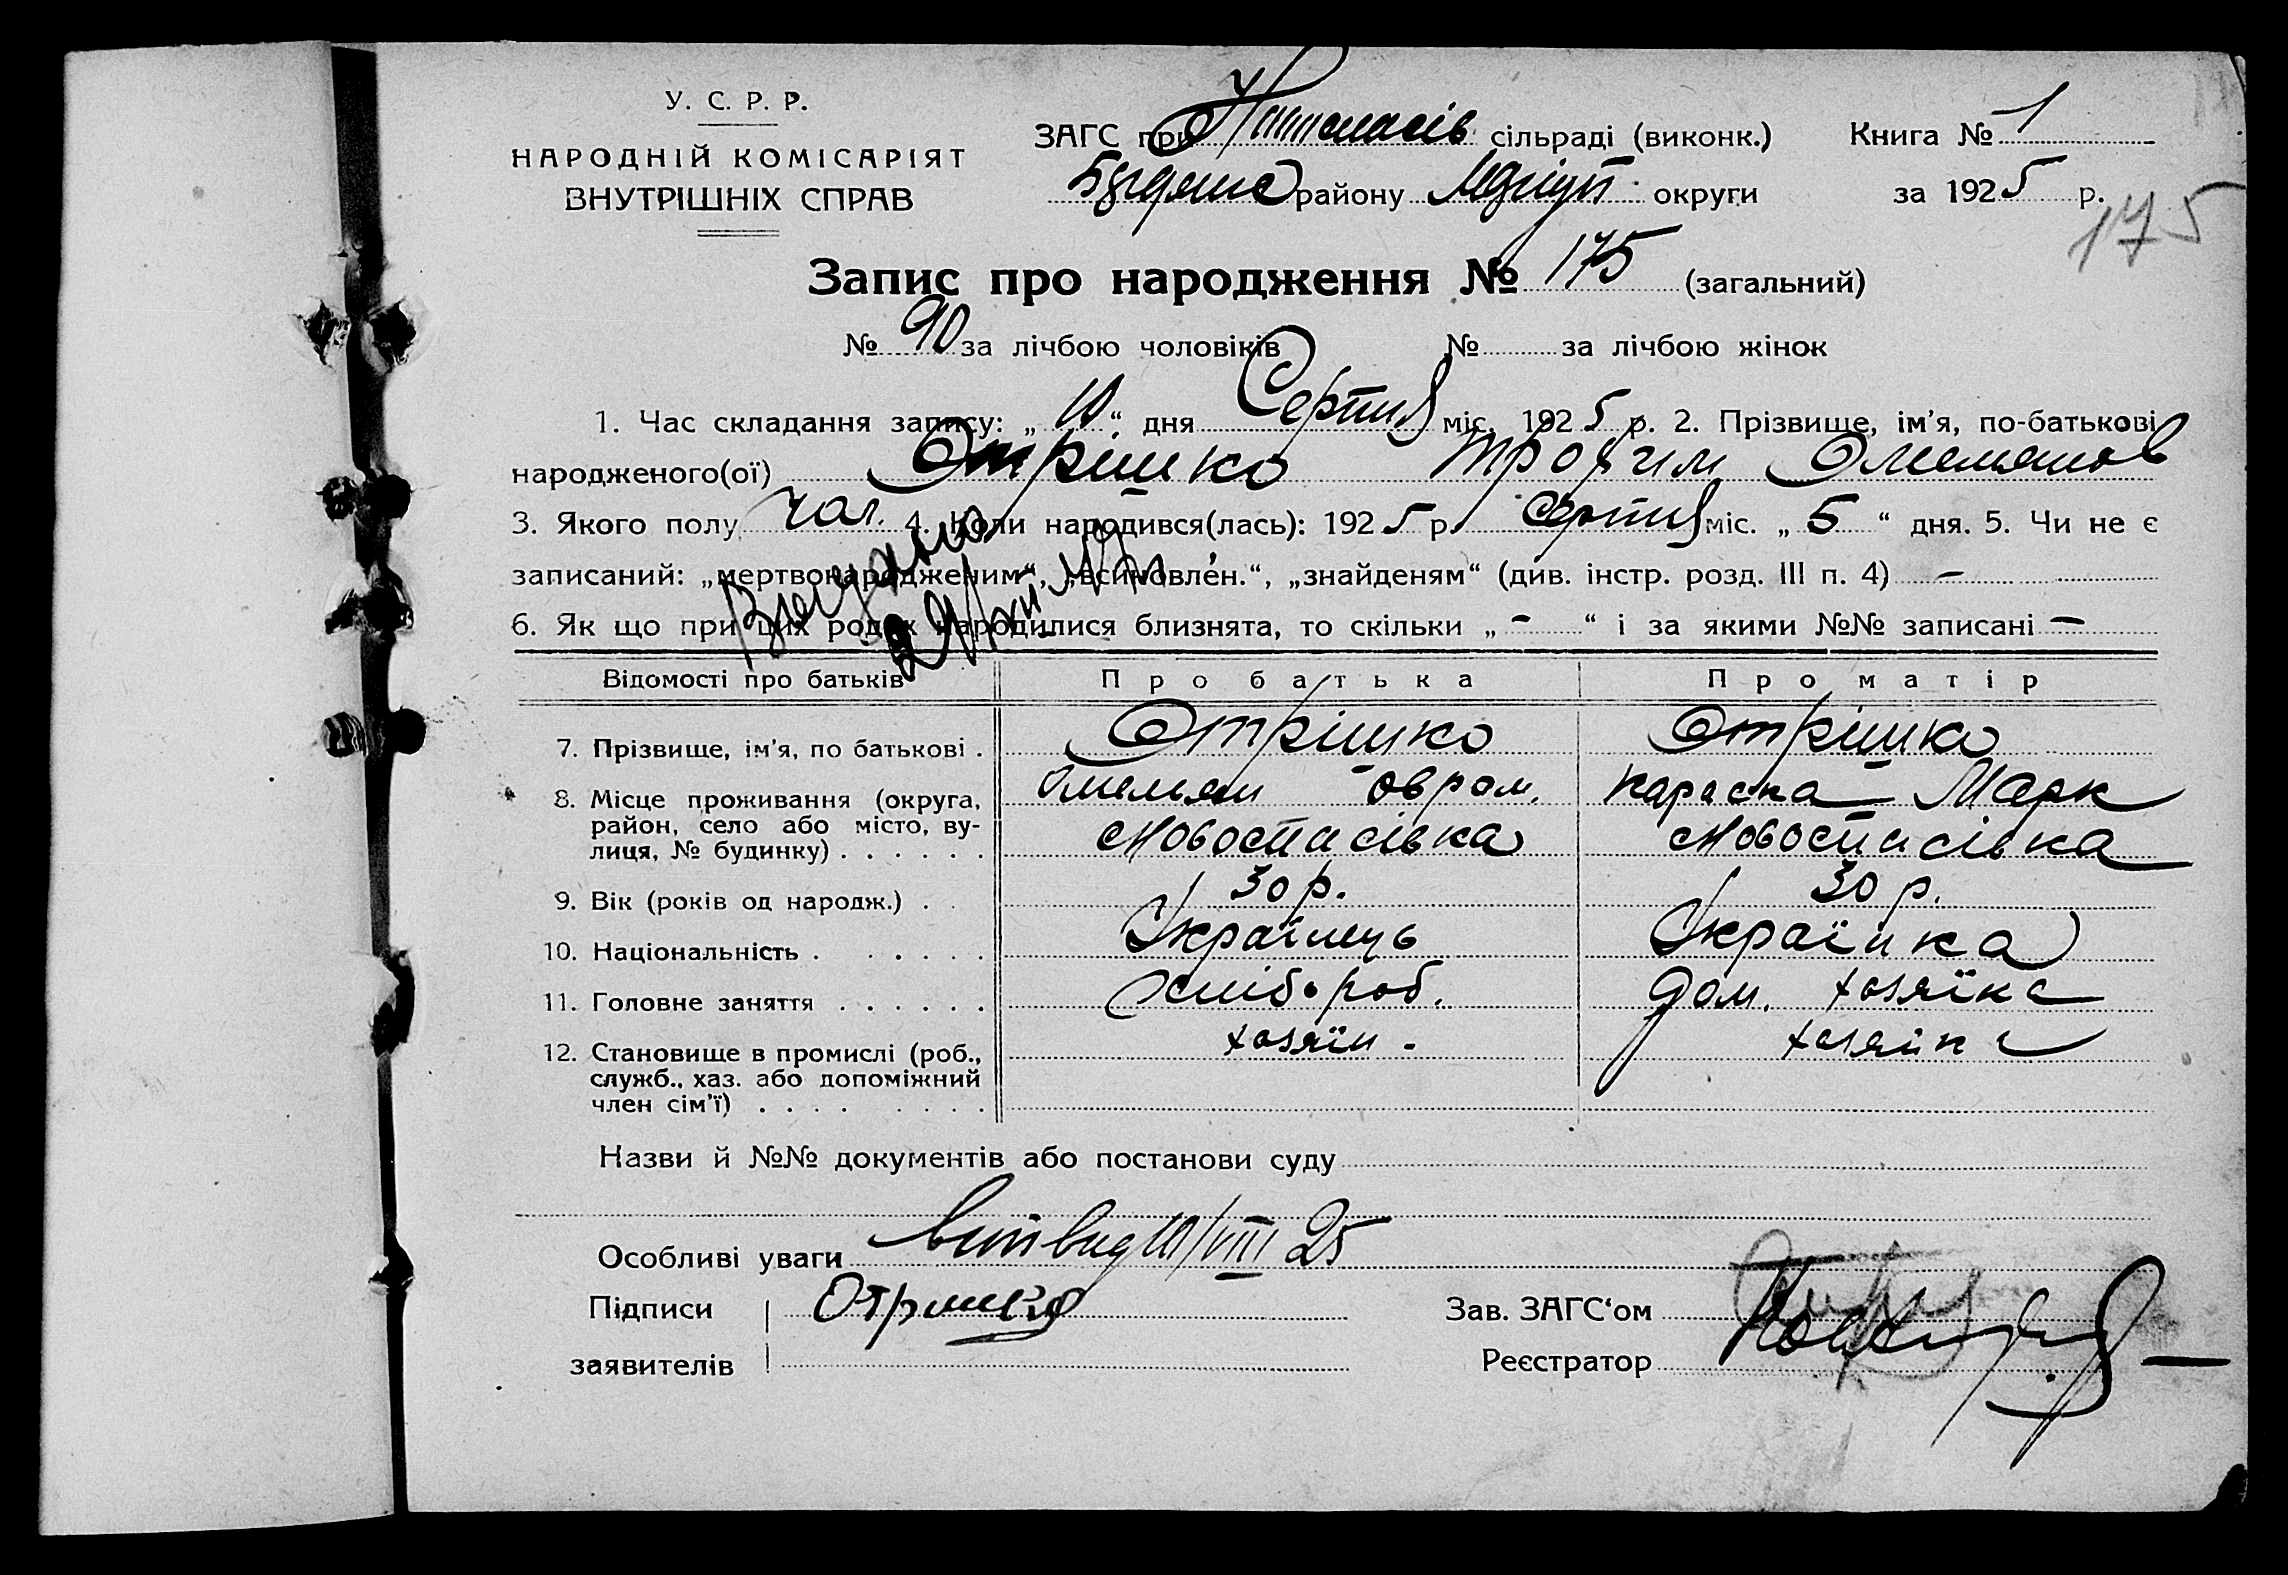 У. С. Р. Р.
НАРОДНІЙ КОМІСАРІЯТ
ВНУТРІШНІХ СПРАВ
ЗАГС при сільраді (виконк.) Книга № 1
району округи за 1925 р.
175
Запис про народження № 175 (загальний)
№ 90 за лічбою чоловіків № за лічбою жінок
1. Час складання запису: „10“ дня Серпня міс. 1925 р. 2. Прізвище, ім’я, по-батькові
народженого(ої) Отрішко Трофим Омелянов
3. Якого полу чол. 4. Коли народився(лась): 1925 р. серпня міс. „5“ дня. 5. Чи не є
записаний: „мертвонародженим“, „всиновлен.“, „знайденям“ (див. інстр. розд. III п. 4) –
6. Як що при цих родах народилися близнята, то скільки „-“ і за якими №№ записані –
Відомості про батьків Про батька Про матір
7. Прізвище, ім’я, по батькові . Отрішко Отрішко
Омелян Овром. Параска Марк
8. Місце проживання (округа,
район, село або місто, ву-
лиця, № будинку) . . . . . . Новоспасівка Новоспасівка
9. Вік (років од народж.) . . 30 р. 30 р.
10. Національність . . . . . . Українець Українка
11. Головне заняття . . . . . . Хлібороб. Дом. хозяїка
12. Становище в промислі (роб.,
служб., хаз. або допоміжний
член сім’ї) . . . . . . . . хозяїн - хозяйка
Назви й №№ документів або постанови суду
Особливі уваги 10/VIII 25
Підписи Отришко Зав. ЗАГС‘ом
заявителів Реєстратор